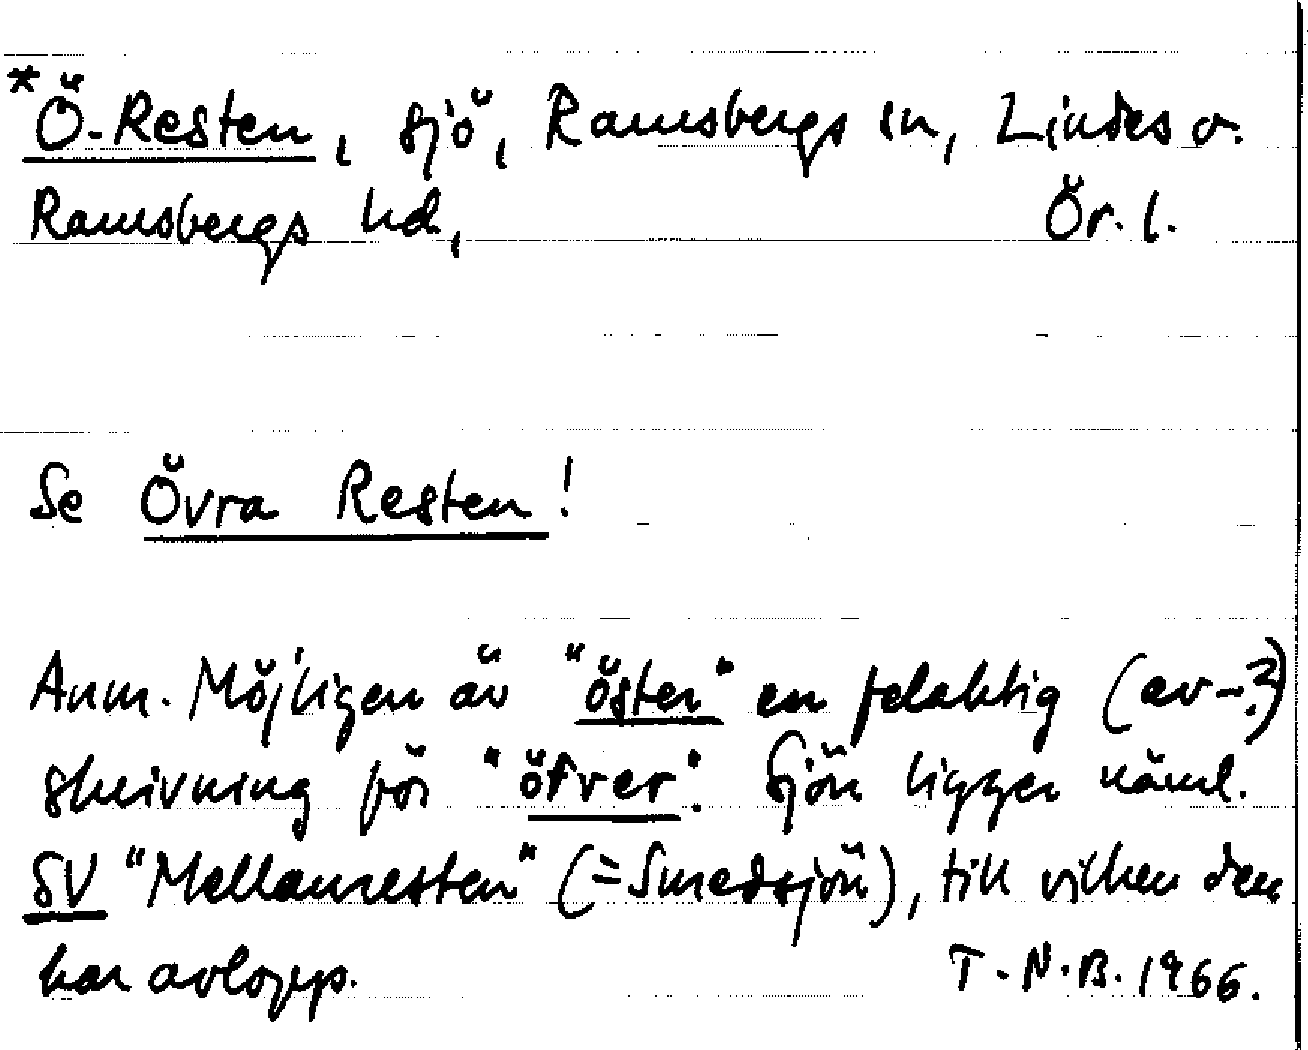 *Ö-Resten, sjö, Ramsbergs sn, Lindes o.
Ramsbergs hd, Ör. l.
Se Övra Resten!
Anm. Möjligen är "öster" en felaktig (av-?)
skrivning för "öfver". Sjön ligger näml.
SV "Mellanresten" (=Smedsjön), till vilken den
har avlopp. T.N.B. 1966.